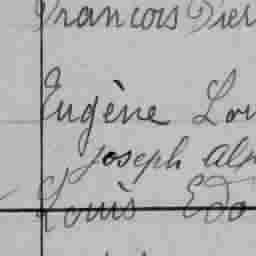 François Pier
Eugène Lou
Joseph Alp
Louis Edo